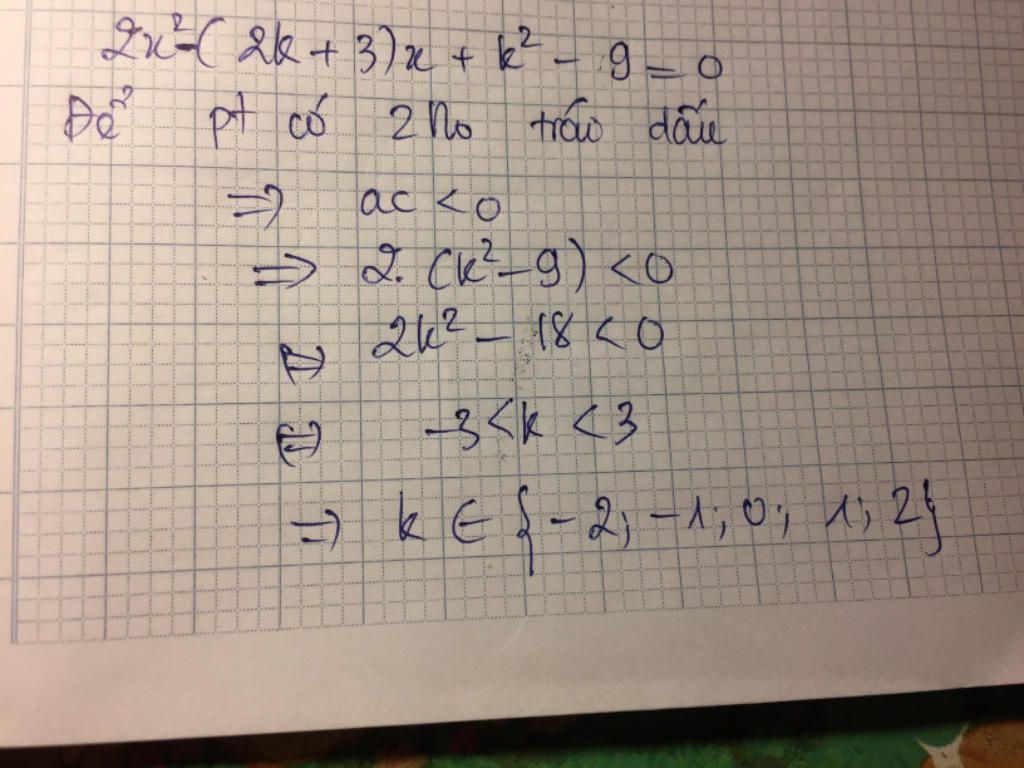 2x²-(2k+3)x+k²-9=0
Để pt có 2 No tráo dấu
⇒ ac<0
⇒ 2.(k²-9)<0
⇔ 2k²-18<0
⇔ -3<k<3
⇒ k∈{-2;-1;0;1;2}